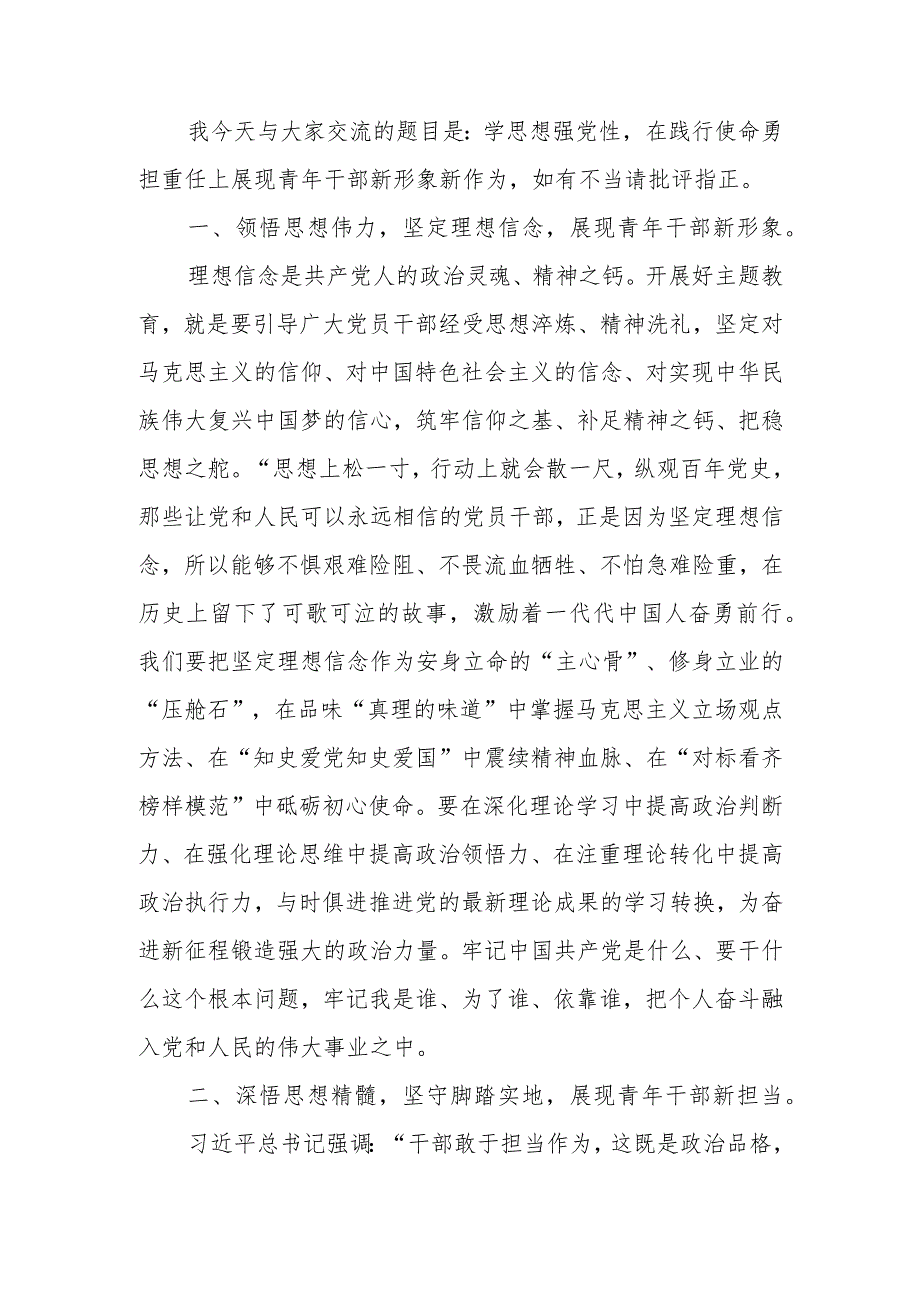 我今天与大家交流的题目是：学思想强党性，在践行使命勇
担重任上展现青年干部新形象新作为，如有不当请批评指正。
一、领悟思想伟力，坚定理想信念，展现青年干部新形象。
理想信念是共产党人的政治灵魂、精神之钙。开展好主题教
育，就是要引导广大党员干部经受思想淬炼、精神洗礼，坚定对
马克思主义的信仰、对中国特色社会主义的信念、对实现中华民
族伟大复兴中国梦的信心，筑牢信仰之基、补足精神之钙、把稳
思想之舵。“思想上松一寸，行动上就会散一尺，纵观百年党史，
那些让党和人民可以永远相信的党员干部，正是因为坚定理想信
念，所以能够不惧艰难险阻、不畏流血牺牲、不怕急难险重，在
历史上留下了可歌可泣的故事，激励着一代代中国人奋勇前行。
我们要把坚定理想信念作为安身立命的“主心骨”、修身立业的
“压舱石”，在品味“真理的味道”中掌握马克思主义立场观点
方法、在“知史爱党知史爱国”中震续精神血脉、在“对标看齐
榜样模范”中砥砺初心使命。要在深化理论学习中提高政治判断
力、在强化理论思维中提高政治领悟力、在注重理论转化中提高
政治执行力，与时俱进推进党的最新理论成果的学习转换，为奋
进新征程锻造强大的政治力量。牢记中国共产党是什么、要干什
么这个根本问题，牢记我是谁、为了谁、依靠谁，把个人奋斗融
入党和人民的伟大事业之中。
二、深悟思想精髓，坚守脚踏实地，展现青年干部新担当。
习近平总书记强调：“干部敢于担当作为，这既是政治品格，